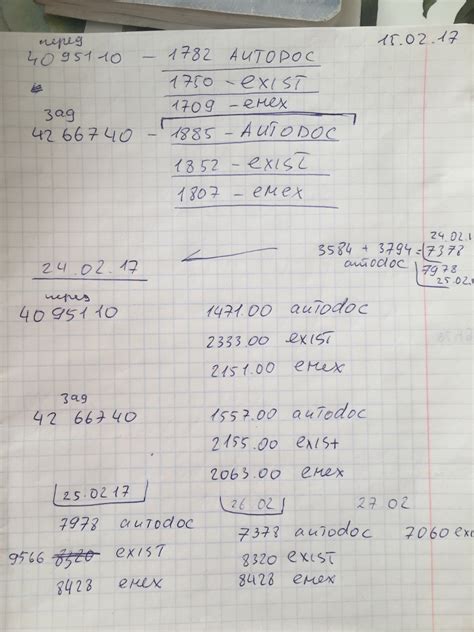 15.02.17
перед
4095110 - 1782 AUTODOC
1750 - EXIST
1709 - EMEX
зад
4266740 - 1885 - AUTODOC
1852 - EXIST
1807 - EMEX
24.02.1
3584 + 3794 = 7378
autodoc 7978
25.02.
24.02.17
перед
4095110 1471.00 autodoc
2333.00 exist
2151.00 emex
зад
4266740 1557.00 autodoc
2155.00 exist
2063.00 emex
25.02.17 26.02 27.02
7978 autodoc 7378 autodoc 7060 exi
9566 8320 exist 8320 exist
8428 emex 8428 emex